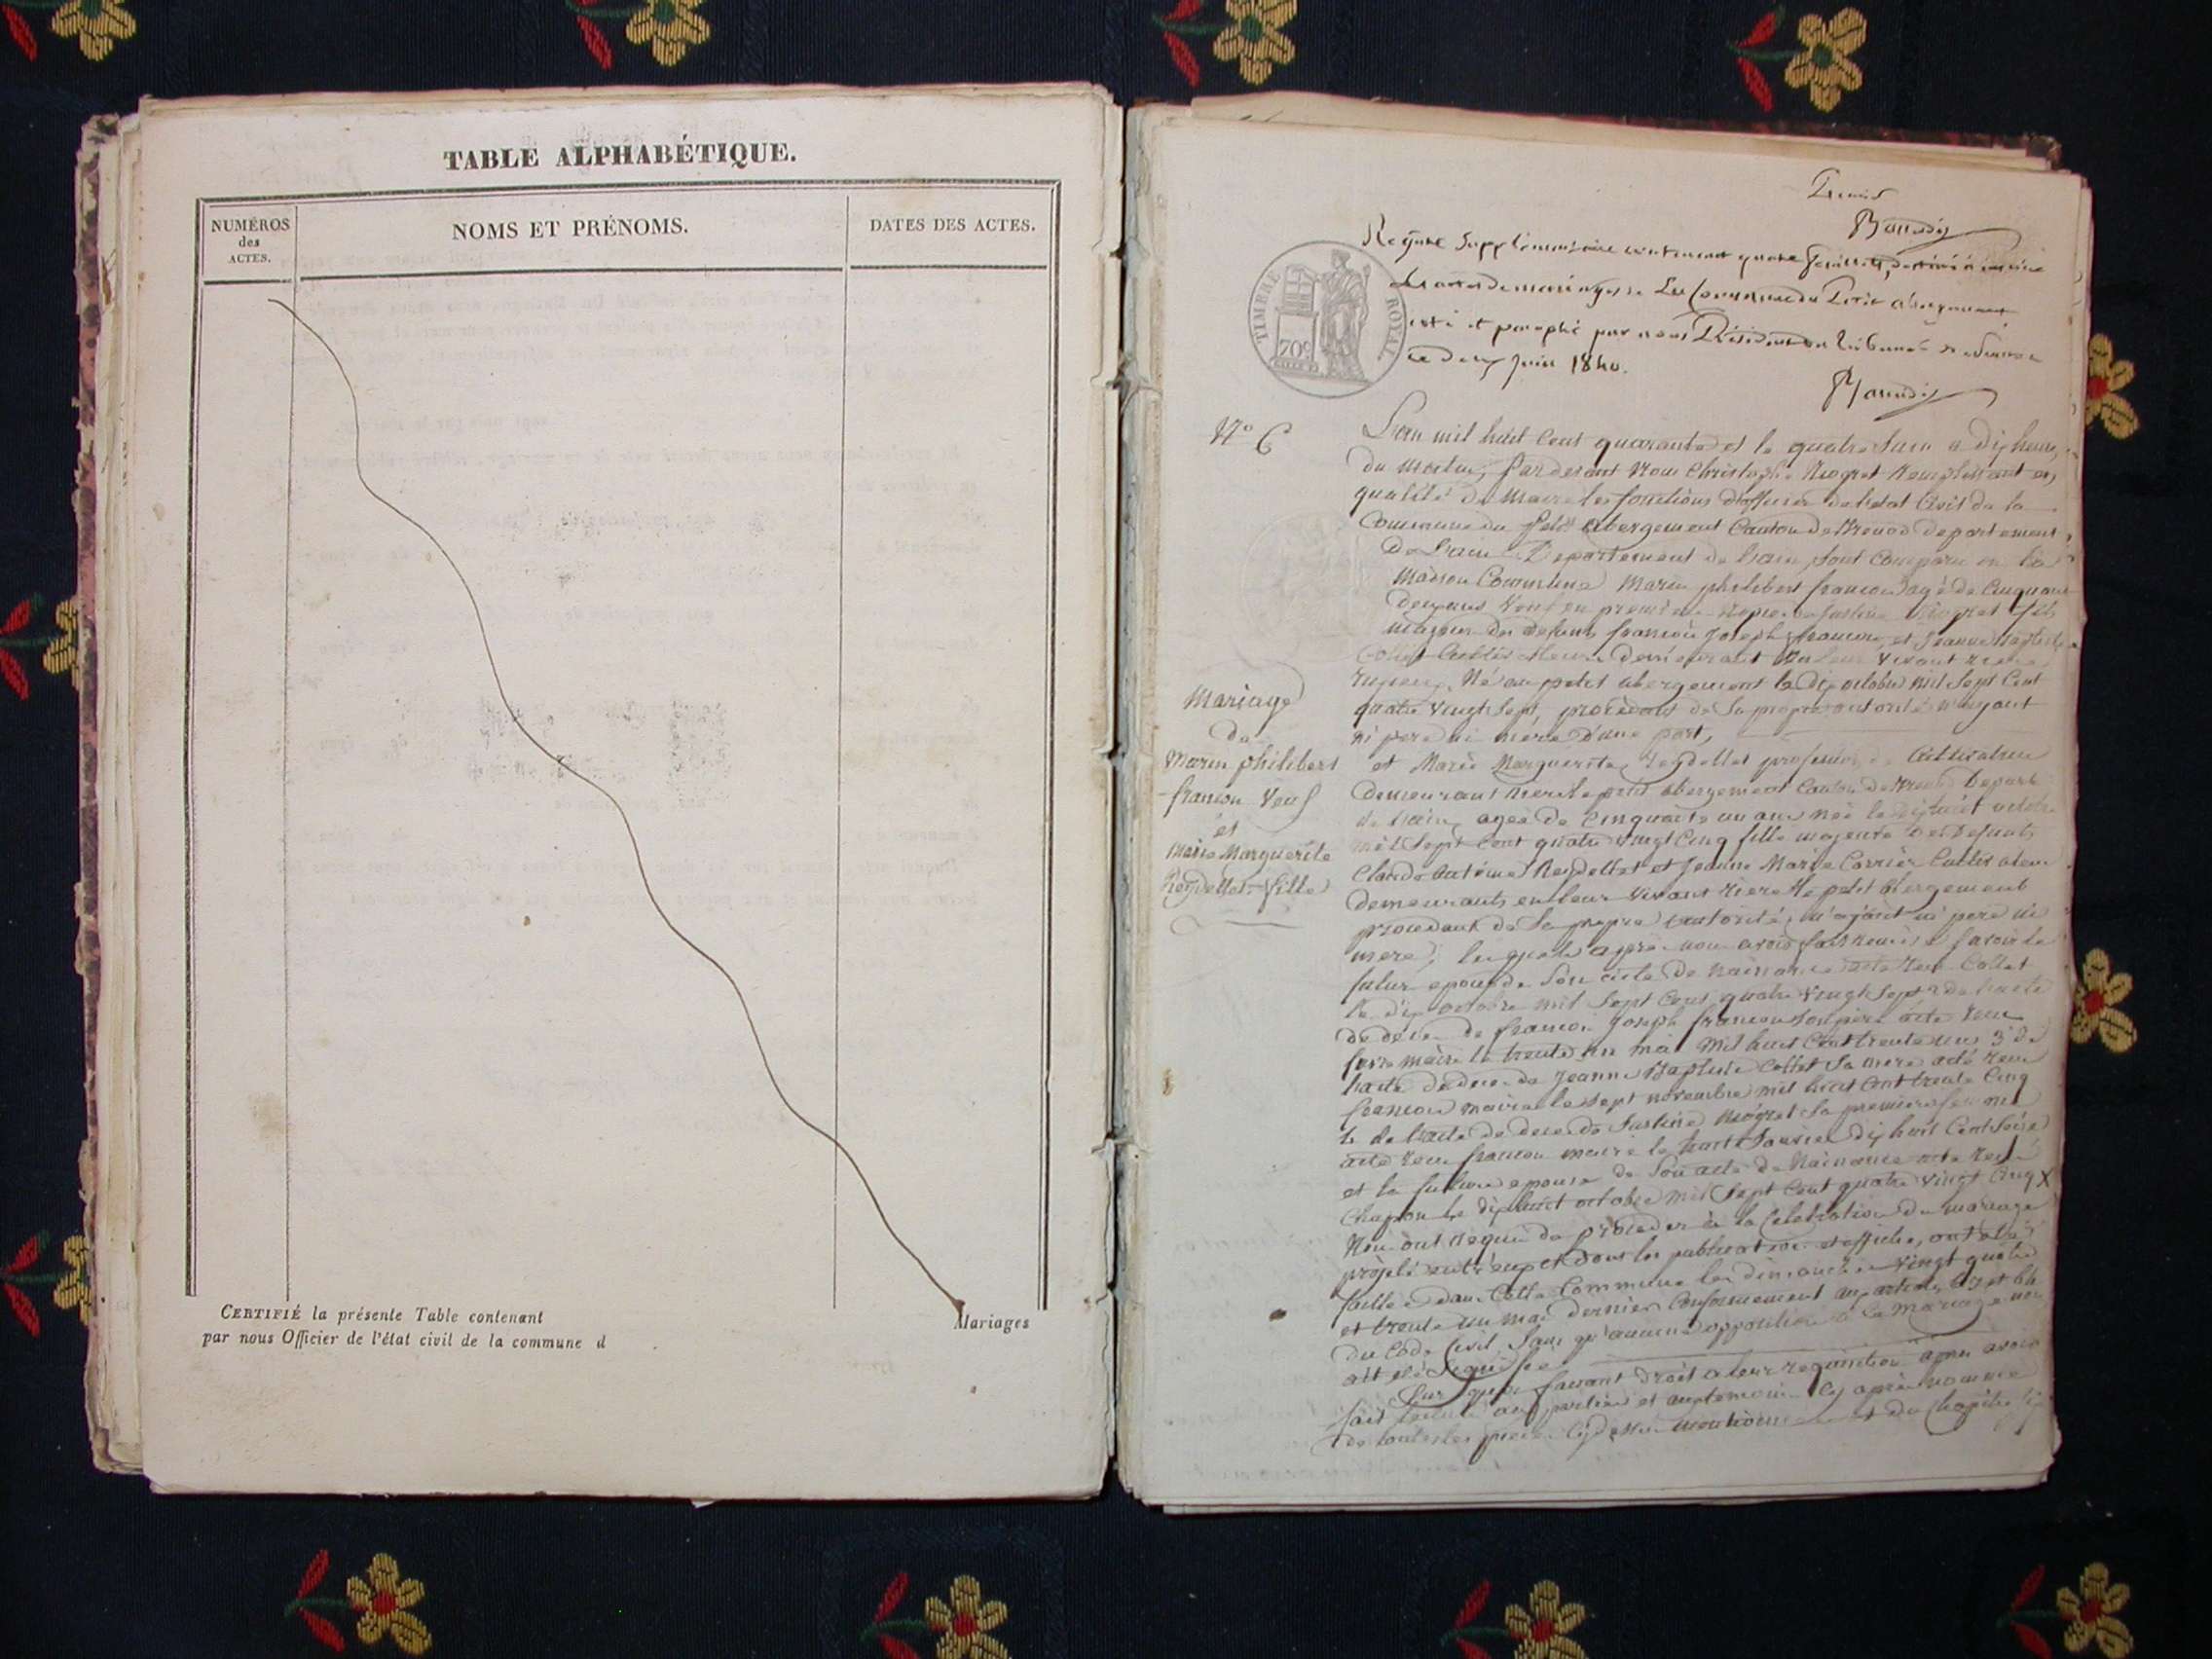 TABLE ALPHABÉTIQUE.
NUMÉROS
des
ACTES.
NOMS ET PRÉNOMS.
DATES DES ACTES.
CERTIFIÉ la présente Table contenant
Mariages
par nous Officier de l'état civil de la commune d
TIMBRE ROYAL
70c
Registre supplémentaire contenant quatre feuillets, destiné à inscrire
les actes de mariages de la Commune du Petit abergement
coté et paraphé par nous Président du tribunal de
ce deux juin 1840.
N° 6
Mariage
de
Marin philibert
francon Veuf
et
Marie Marguerite
Reydellet fille
L'an mil huit Cent quarante et le quatre Juin a dix heures
du matin, Pardevant Nous Christophe Niogret Remplissant en
qualité de Maire les fonctions d'officier de l'etat Civil de la
Commune du petit abergement Canton de Brenod departement
De L'ain Departement de l'ain, sont Comparu en la
Maison Commune Marin philibert francon agé de Cinquante
deux ans Veuf en premiere Noces de Justine Niogret fils
majeur des defunts francois Joseph francon, et Jeanne Baptiste
Collet demeurant leur Vivant
Né au petit abergement le dix octobre mil Sept Cent
quatre Vingt Sept, procedant de Sa propre autorité n'ayant
ni pere ni mere D'une part,
et Marie Marguerite Reydellet profession de Cultivatrice
demeurant petit abergement Canton de Brenod Depart
de L'ain, agée de Cinquante un ans Née le dix huit octobre
mil Sept Cent quatre Vingt Cinq fille majeure des defunts
Claude Antoine Reydellet et Jeanne Marie Carrier Cultivateur
demeurants en leur Vivant riere le petit abergement
procedant de Sa propre autorité, n'ayant ni pere ni
mere; lesquels apres nous avoir fait remis a Savoir le
futur epoux de Son acte de Naissance acte recu Collet
le dix octobre mil Sept Cent quatre Vingt Sept 2 de l'acte
de deces de francois Joseph francon Son pere acte recu
maire le trente un mai mil huit Cent trente un 3 de
l'acte de deces de Jeanne Baptiste Collet Sa mere acte recu
francon maire le Sept novembre mil huit Cent trente Cinq
4 de l'acte de deces de Justine Niogret Sa premiere femme
acte recu francon maire le trente Janvier dix huit Cent Seize
et la future epouse de Son acte de Naissance acte recu
Chapon le dix huit octobre mil Sept Cent quatre Vingt Cinq X
Nous ont requis de proceder à la Celebration du mariage
projeté entr'eux et dont les publications et affiches, ont eté
faites dans Cette Commune les dimanches Vingt quatre
et trente un mai dernier Conformement
du Code Civil, Sans qu'aucune opposition a Ce Mariage nous
ait eté Signifiee
Sur quoi faisant droit a leur requisition apres avoir
fait lecture aux parties et aux temoins Cy apres nommés
de toutes les pieces Cy dessus mentionnees et du Chapitre Six